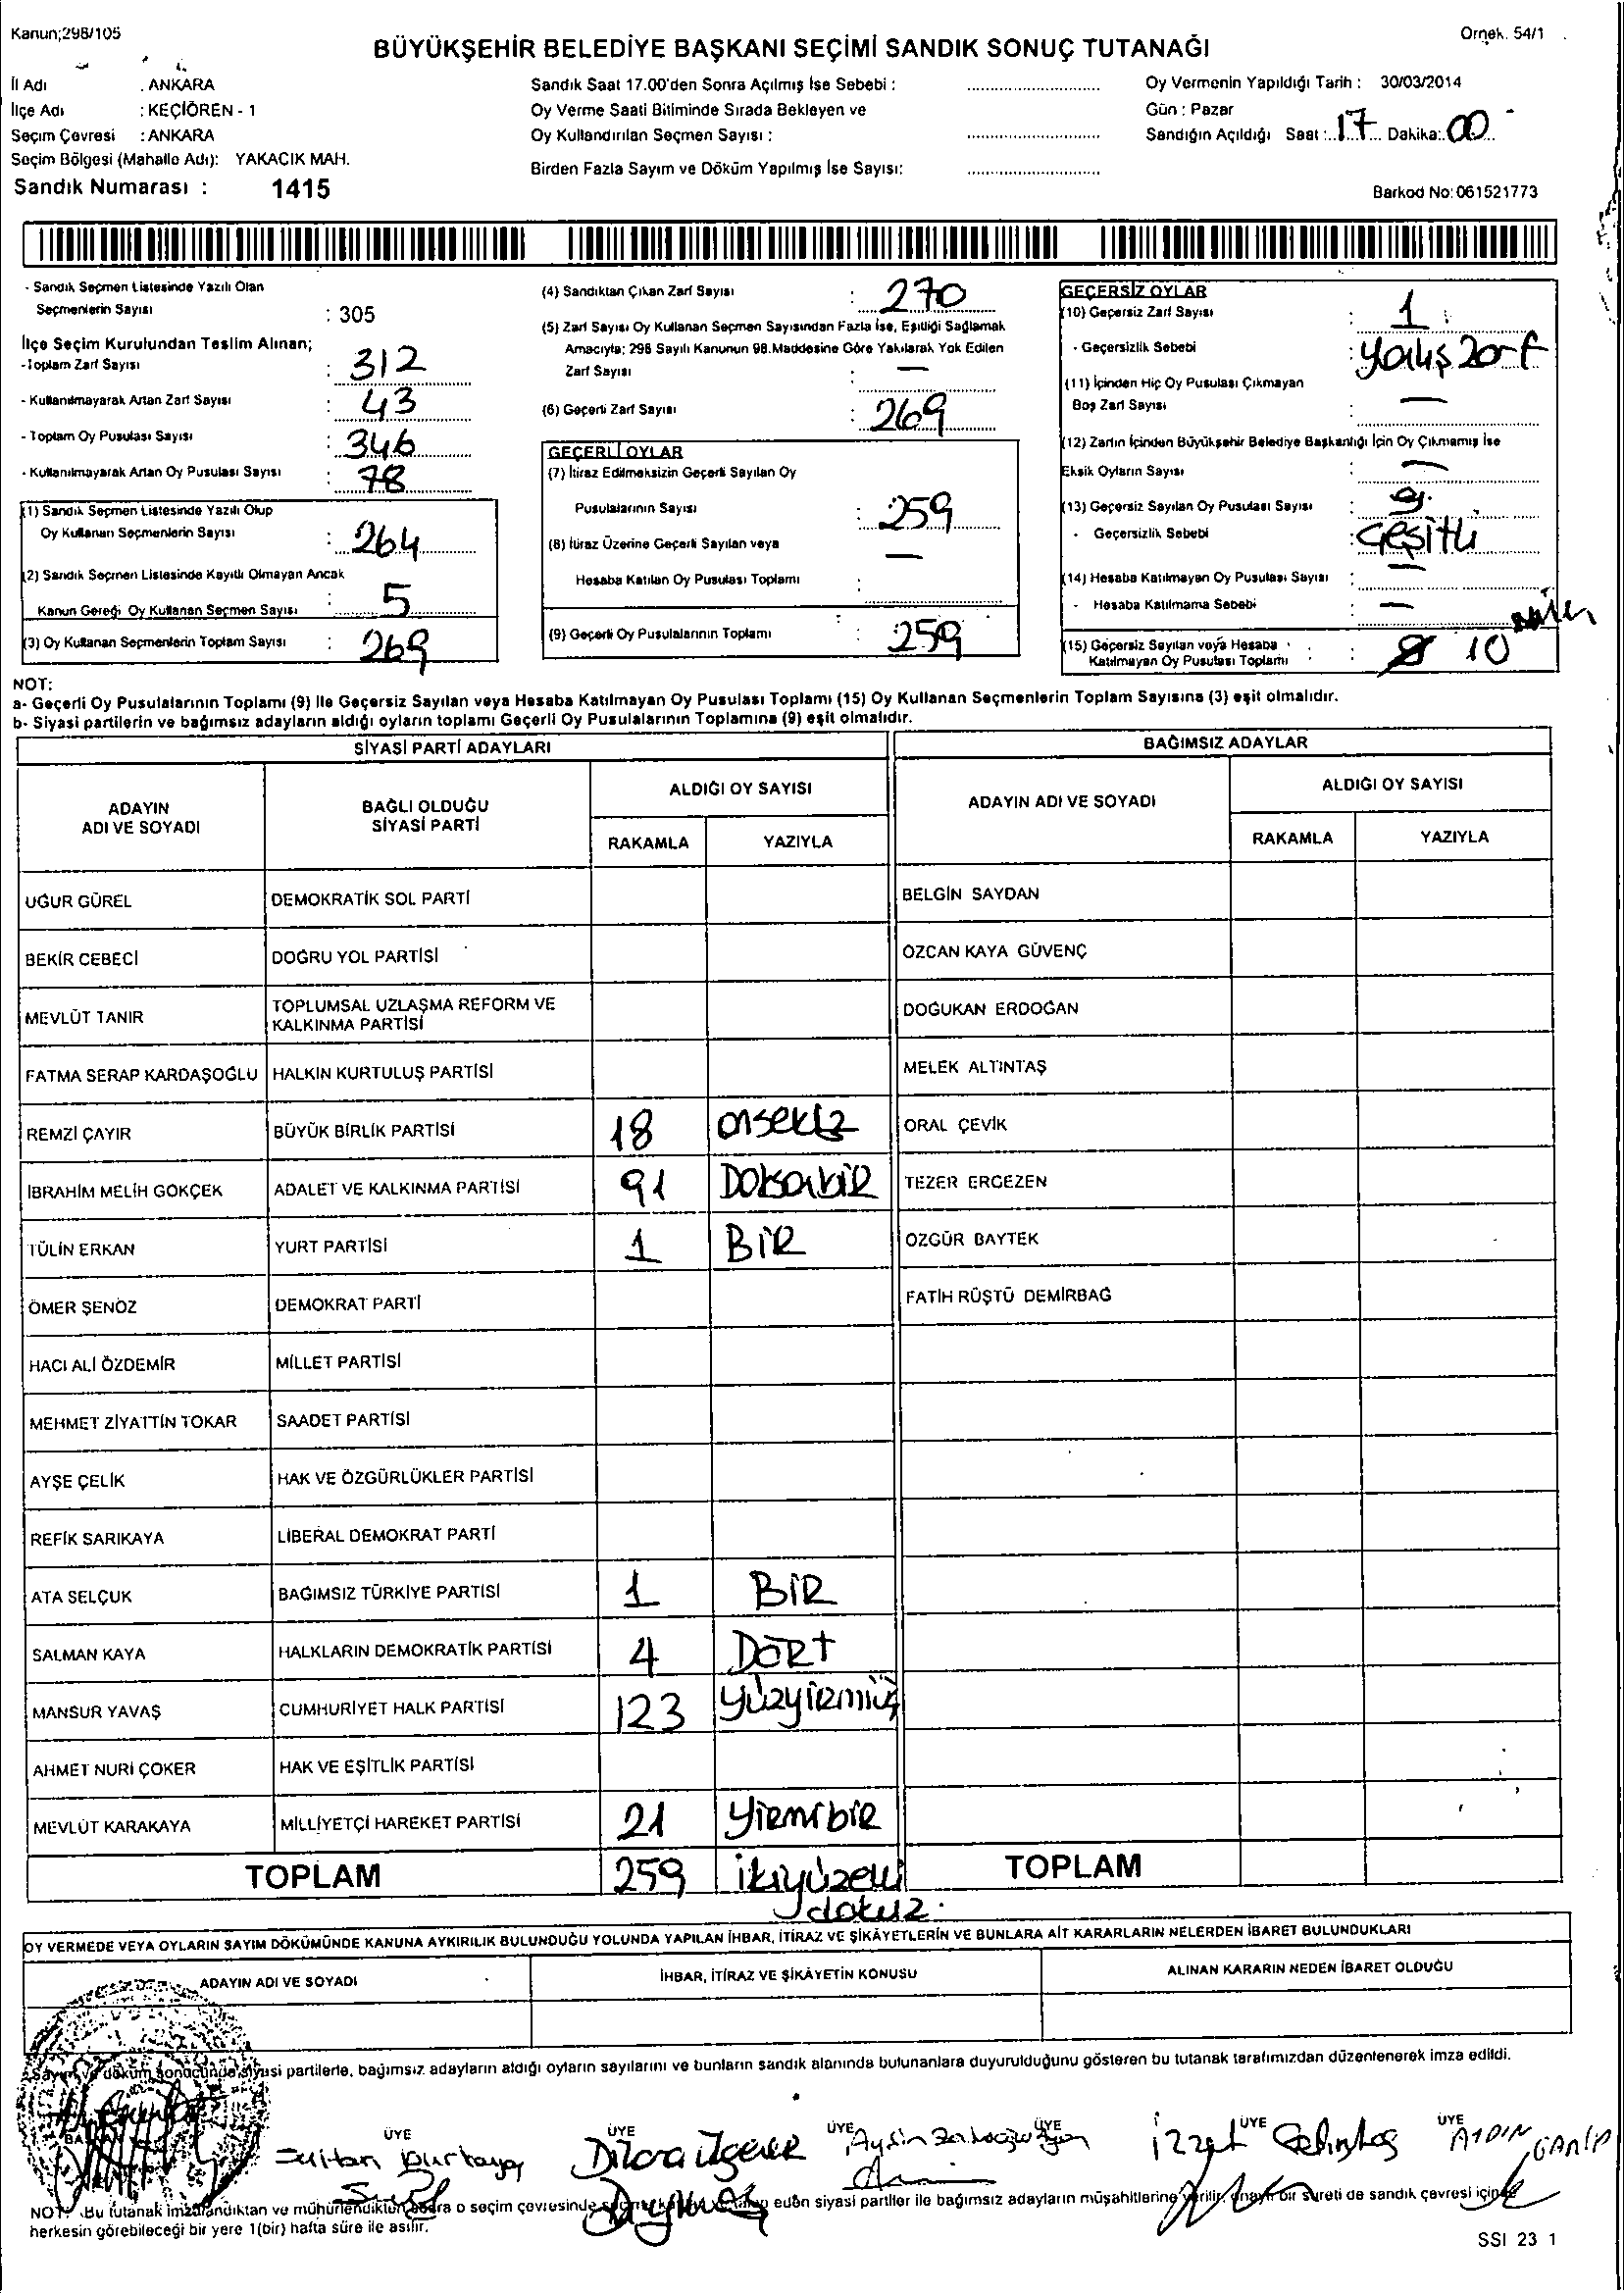 Kanun;298/105
Örnek. 54/1
BÜYÜKŞEHİR BELEDİYE BAŞKANI SEÇİMİ SANDIK SONUÇ TUTANAĞI
İl Adı : ANKARA
İlçe Adı : KEÇİÖREN - 1
Seçim Çevresi : ANKARA
Seçim Bölgesi (Mahalle Adı): YAKACIK MAH.
Sandık Numarası : 1415
Sandık Saat 17.00'den Sonra Açılmış İse Sebebi :
Oy Verme Saati Bitiminde Sırada Bekleyen ve
Oy Kullandırılan Seçmen Sayısı :
Birden Fazla Sayım ve Döküm Yapılmış İse Sayısı:
Oy Vermenin Yapıldığı Tarih : 30/03/2014
Gün : Pazar
Sandığın Açıldığı Saat : 17 Dakika: 00
Barkod No: 061521773
- Sandık Seçmen Listesinde Yazılı Olan
Seçmenlerin Sayısı : 305
İlçe Seçim Kurulundan Teslim Alınan;
-Toplam Zarf Sayısı : 312
- Kullanılmayarak Artan Zarf Sayısı : 43
- Toplam Oy Pusulası Sayısı : 346
- Kullanılmayarak Artan Oy Pusulası Sayısı : 78
(1) Sandık Seçmen Listesinde Yazılı Olup
Oy Kullanan Seçmenlerin Sayısı : 264
(2) Sandık Seçmen Listesinde Kayıtlı Olmayan Ancak
Kanun Gereği Oy Kullanan Seçmen Sayısı : 5
(3) Oy Kullanan Seçmenlerin Toplam Sayısı : 269
(4) Sandıktan Çıkan Zarf Sayısı : 270
(5) Zarf Sayısı Oy Kullanan Seçmen Sayısından Fazla İse, Eşitliği Sağlamak
Amacıyla; 298 Sayılı Kanunun 98.Maddesine Göre Yakılarak Yok Edilen
Zarf Sayısı : —
(6) Geçerli Zarf Sayısı : 269
GEÇERLİ OYLAR
(7) İtiraz Edilmeksizin Geçerli Sayılan Oy
Pusulalarının Sayısı : 259
(8) İtiraz Üzerine Geçerli Sayılan veya
Hesaba Katılan Oy Pusulası Toplamı : —
(9) Geçerli Oy Pusulalarının Toplamı : 259
GEÇERSİZ OYLAR
(10) Geçersiz Zarf Sayısı : 1
- Geçersizlik Sebebi : yalış zarf
(11) İçinden Hiç Oy Pusulası Çıkmayan
Boş Zarf Sayısı : —
(12) Zarfın İçinden Büyükşehir Belediye Başkanlığı İçin Oy Çıkmamış İse
Eksik Oyların Sayısı : —
(13) Geçersiz Sayılan Oy Pusulası Sayısı : 9
- Geçersizlik Sebebi : çeşitli
(14) Hesaba Katılmayan Oy Pusulası Sayısı : —
- Hesaba Katılmama Sebebi : —
(15) Geçersiz Sayılan veya Hesaba
Katılmayan Oy Pusulası Toplamı : 10
NOT:
a- Geçerli Oy Pusulalarının Toplamı (9) ile Geçersiz Sayılan veya Hesaba Katılmayan Oy Pusulası Toplamı (15) Oy Kullanan Seçmenlerin Toplam Sayısına (3) eşit olmalıdır.
b- Siyasi partilerin ve bağımsız adayların aldığı oyların toplamı Geçerli Oy Pusulalarının Toplamına (9) eşit olmalıdır.
SİYASİ PARTİ ADAYLARI
ADAYIN ADI VE SOYADI
BAĞLI OLDUĞU SİYASİ PARTİ
ALDIĞI OY SAYISI
RAKAMLA YAZIYLA
UĞUR GÜREL DEMOKRATİK SOL PARTİ
BEKİR CEBECİ DOĞRU YOL PARTİSİ
MEVLÜT TANIR TOPLUMSAL UZLAŞMA REFORM VE KALKINMA PARTİSİ
FATMA SERAP KARDAŞOĞLU HALKIN KURTULUŞ PARTİSİ
REMZİ ÇAYIR BÜYÜK BİRLİK PARTİSİ 18 onsekiz
İBRAHİM MELİH GÖKÇEK ADALET VE KALKINMA PARTİSİ 91 Doksanbir
TÜLİN ERKAN YURT PARTİSİ 1 BİR
ÖMER ŞENÖZ DEMOKRAT PARTİ
HACI ALİ ÖZDEMİR MİLLET PARTİSİ
MEHMET ZİYATTİN TOKAR SAADET PARTİSİ
AYŞE ÇELİK HAK VE ÖZGÜRLÜKLER PARTİSİ
REFİK SARIKAYA LİBERAL DEMOKRAT PARTİ
ATA SELÇUK BAĞIMSIZ TÜRKİYE PARTİSİ 1 BİR
SALMAN KAYA HALKLARIN DEMOKRATİK PARTİSİ 4 DÖRT
MANSUR YAVAŞ CUMHURİYET HALK PARTİSİ 123 yüzyirmiüç
AHMET NURİ ÇOKER HAK VE EŞİTLİK PARTİSİ
MEVLÜT KARAKAYA MİLLİYETÇİ HAREKET PARTİSİ 21 yirmibir
TOPLAM 259 ikiyüzelli dokuz
BAĞIMSIZ ADAYLAR
ADAYIN ADI VE SOYADI
ALDIĞI OY SAYISI
RAKAMLA YAZIYLA
BELGİN SAYDAN
ÖZCAN KAYA GÜVENÇ
DOĞUKAN ERDOĞAN
MELEK ALTINTAŞ
ORAL ÇEVİK
TEZER ERGEZEN
ÖZGÜR BAYTEK
FATİH RÜŞTÜ DEMİRBAĞ
TOPLAM
OY VERMEDE VEYA OYLARIN SAYIM DÖKÜMÜNDE KANUNA AYKIRILIK BULUNDUĞU YOLUNDA YAPILAN İHBAR, İTİRAZ VE ŞİKÂYETLERİN VE BUNLARA AİT KARARLARIN NELERDEN İBARET BULUNDUKLARI
ADAYIN ADI VE SOYADI
İHBAR, İTİRAZ VE ŞİKÂYETİN KONUSU
ALINAN KARARIN NEDEN İBARET OLDUĞU
Sayım ve döküm sonucunda siyasi partilerle, bağımsız adayların aldığı oyların sayılarını ve bunların sandık alanında bulunanlara duyurulduğunu gösteren bu tutanak tarafımızdan düzenlenerek imza edildi.
ÜYE ÜYE ÜYE ÜYE ÜYE ÜYE
Sultan Aydın İzzet AYDIN GARİP
NOT: Bu tutanak imzalandıktan ve mühürlendikten sonra o seçim çevresinde eden siyasi partiler ile bağımsız adayların müşahitlerine verilir, onaylı bir sureti de sandık çevresi içinde
herkesin görebileceği bir yere 1(bir) hafta süre ile asılır.
SSI 23 1